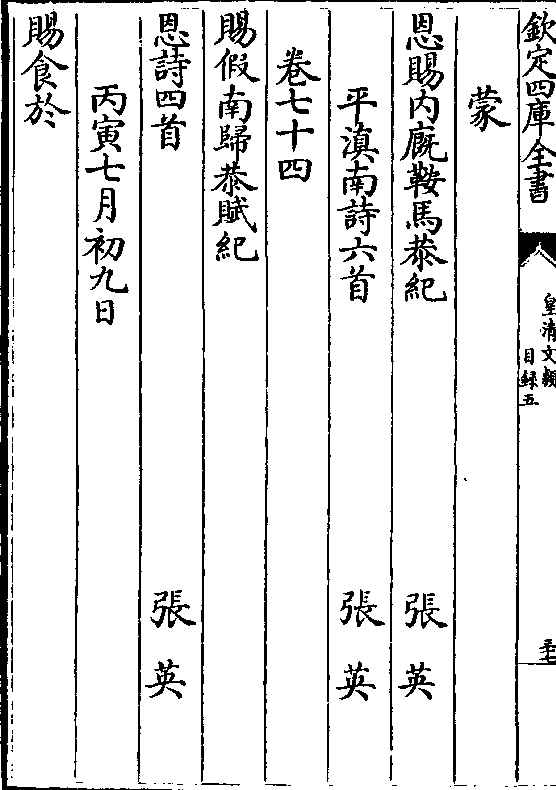 欽定四庫全書
皇清文穎
目録五
三七
蒙
恩賜内廐鞍馬恭紀 張英
平滇南詩六首 張英
卷七十四
賜假南歸恭賦紀
恩詩四首 張英
丙寅七月初九日
賜食於